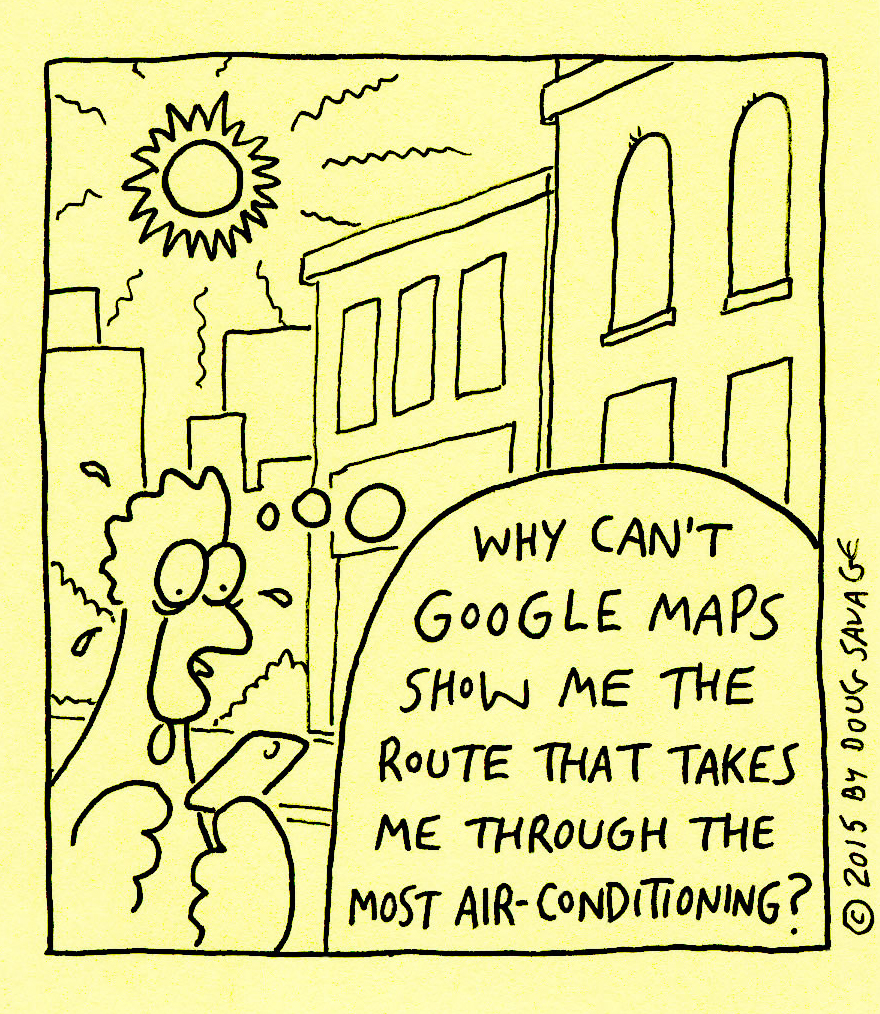 WHY CAN'T
GOOGLE MAPS
SHOW ME THE
ROUTE THAT TAKES
ME THROUGH THE
MOST AIR-CONDITIONING?
© 2015 BY DOUG SAVAGE